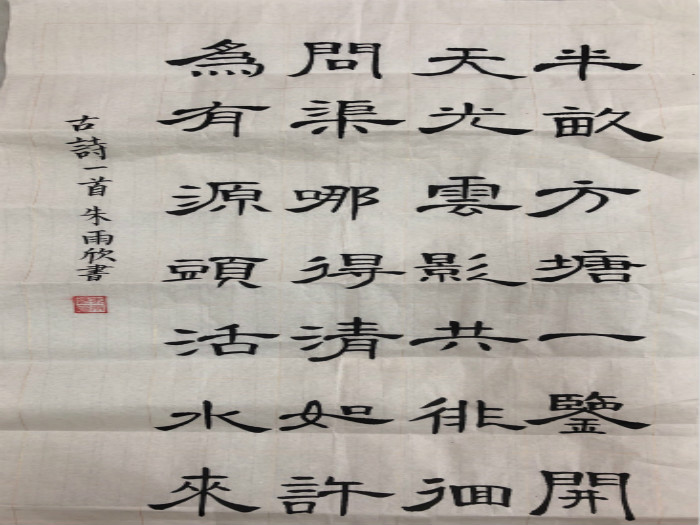 半畝方塘一鑒開
天光雲影共徘徊
問渠哪得清如許
為有源頭活水來
古詩一首朱雨欣書